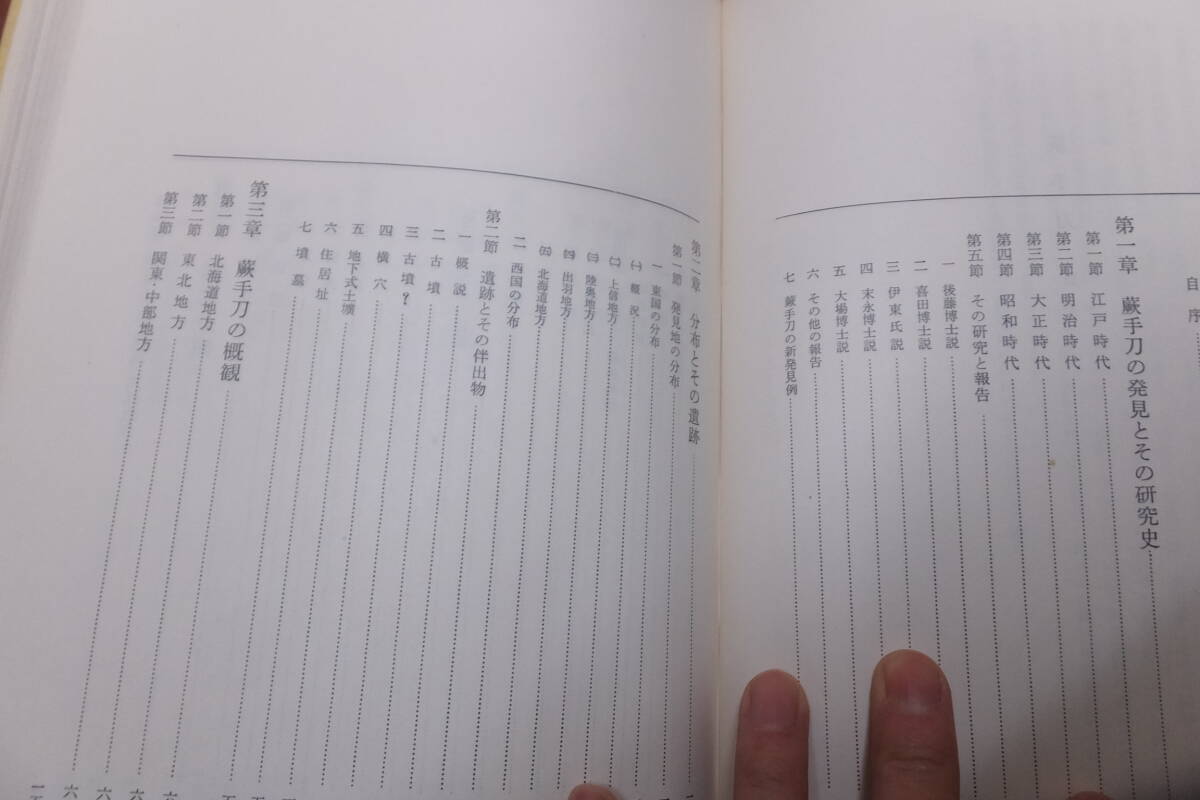 自序
第一章 蕨手刀の発見とその研究史
第一節 江戸時代
第二節 明治時代
第三節 大正時代
第四節 昭和時代
第五節 その研究と報告
一 後藤博士説
二 喜田博士説
三 伊東氏説
四 末永博士説
五 大場博士説
六 その他の報告
七 蕨手刀の新発見例
第二章 分布とその遺跡
第一節 発見地の分布
一 東国の分布
㈠ 概況
㈡ 上信地方
㈢ 陸奥地方
㈣ 出羽地方
㈤ 北海道地方
二 西国の分布
第二節 遺跡とその伴出物
一 概説
二 古墳
三 古墳?
四 横穴
五 地下式土壙
六 住居址
七 墳墓
第三章 蕨手刀の概観
第一節 北海道地方
第二節 東北地方
第三節 関東・中部地方